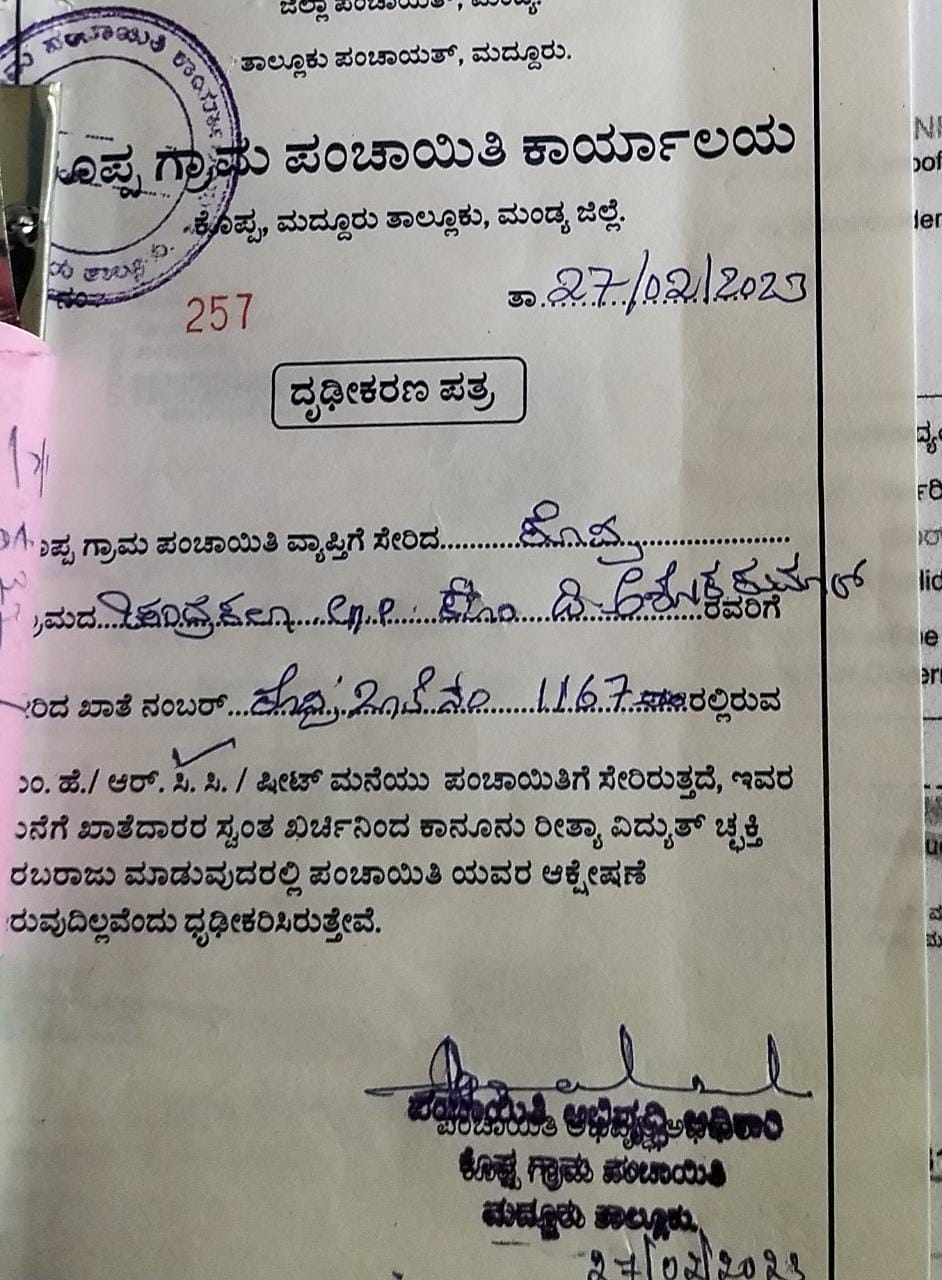 ಜಿಲ್ಲಾ ಪಂಚಾಯತ್, ಮಂಡ್ಯ.
ತಾಲ್ಲೂಕು ಪಂಚಾಯತ್, ಮದ್ದೂರು.
ೊಪ್ಪ ಗ್ರಾಮ ಪಂಚಾಯಿತಿ ಕಾರ್ಯಾಲಯ
ಕೊಪ್ಪ, ಮದ್ದೂರು ತಾಲ್ಲೂಕು, ಮಂಡ್ಯ ಜಿಲ್ಲೆ.
ನಂ 257 ತಾ. 27/02/2023
ದೃಢೀಕರಣ ಪತ್ರ
ೊಪ್ಪ ಗ್ರಾಮ ಪಂಚಾಯಿತಿ ವ್ಯಾಪ್ತಿಗೆ ಸೇರಿದ ಕೊಪ್ಪ
ರಾಮದ ಚಂದ್ರಕಲಾ ಕೋಂ ಡಿ. ಅಶೋಕ ಕುಮಾರ್ ರವರಿಗೆ
ೇರಿದ ಖಾತೆ ನಂಬರ್ 1167 ರಲ್ಲಿರುವ
ಂ. ಹೆ./ ಆರ್. ಸಿ. ಸಿ. / ಷೀಟ್ ಮನೆಯು ಪಂಚಾಯಿತಿಗೆ ಸೇರಿರುತ್ತದೆ, ಇವರ
ನೆಗೆ ಖಾತೆದಾರರ ಸ್ವಂತ ಖರ್ಚಿನಿಂದ ಕಾನೂನು ರೀತ್ಯಾ ವಿದ್ಯುತ್ ಚ್ಛಕ್ತಿ
ರಬರಾಜು ಮಾಡುವುದರಲ್ಲಿ ಪಂಚಾಯಿತಿ ಯವರ ಆಕ್ಷೇಷಣೆ
ರುವುದಿಲ್ಲವೆಂದು ಧೃಢೀಕರಿಸಿರುತ್ತೇವೆ.
ಪಂಚಾಯಿತಿ ಅಭಿವೃದ್ಧಿ ಅಧಿಕಾರಿ
ಕೊಪ್ಪ ಗ್ರಾಮ ಪಂಚಾಯಿತಿ
ಮದ್ದೂರು ತಾಲ್ಲೂಕು.
27/02/2023